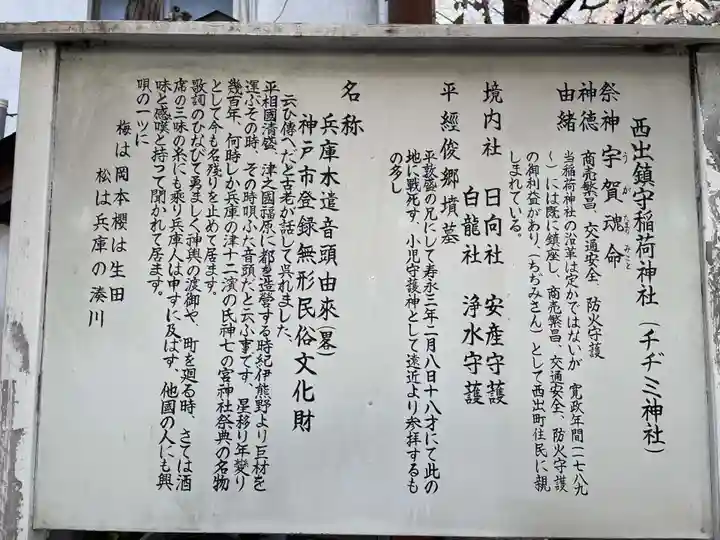 西出鎮守稲荷神社(チヂミ神社)
祭神 宇賀魂命
うがたまのみこと
神徳 商売繁昌、交通安全、防火守護
由緒 当稲荷神社の沿革は定かではないが 寛政年間(一七八九
~)には既に鎮座し、商売繁昌、交通安全、防火守護
の御利益があり、(ちぢみさん)として西出町住民に親
しまれている。
境内社 日向社 安産守護
白龍社 浄水守護
平經俊郷墳墓
平敦盛の兄にして寿永三年二月八日十八才にて此の
地に戦死す、小児守護神として遠近より参拝するも
の多し
名称
兵庫木遣音頭由來(畧)
神戸市登録無形民俗文化財
云ひ傳へだと古老が話して呉れました、
平相國清盛、津之國福原に都を造營する時紀伊熊野より巨材を
運ぶその時、その時唄ふた音頭だと云ふ事です、星移り年変り
幾百年、何時しか兵庫の津十二濱の氏神七の宮神社祭典の名物
として今も名残りを止めて居ます。
歌詞のひなびて勇ましく神輿の渡御や、町を廻る時、さては酒
席の三味の糸にも乗り兵庫人は申すに及ばす、他國の人にも興
味と感嘆と持って聞かれて居ます。
唄の一ツに
梅は岡本櫻は生田
松は兵庫の湊川